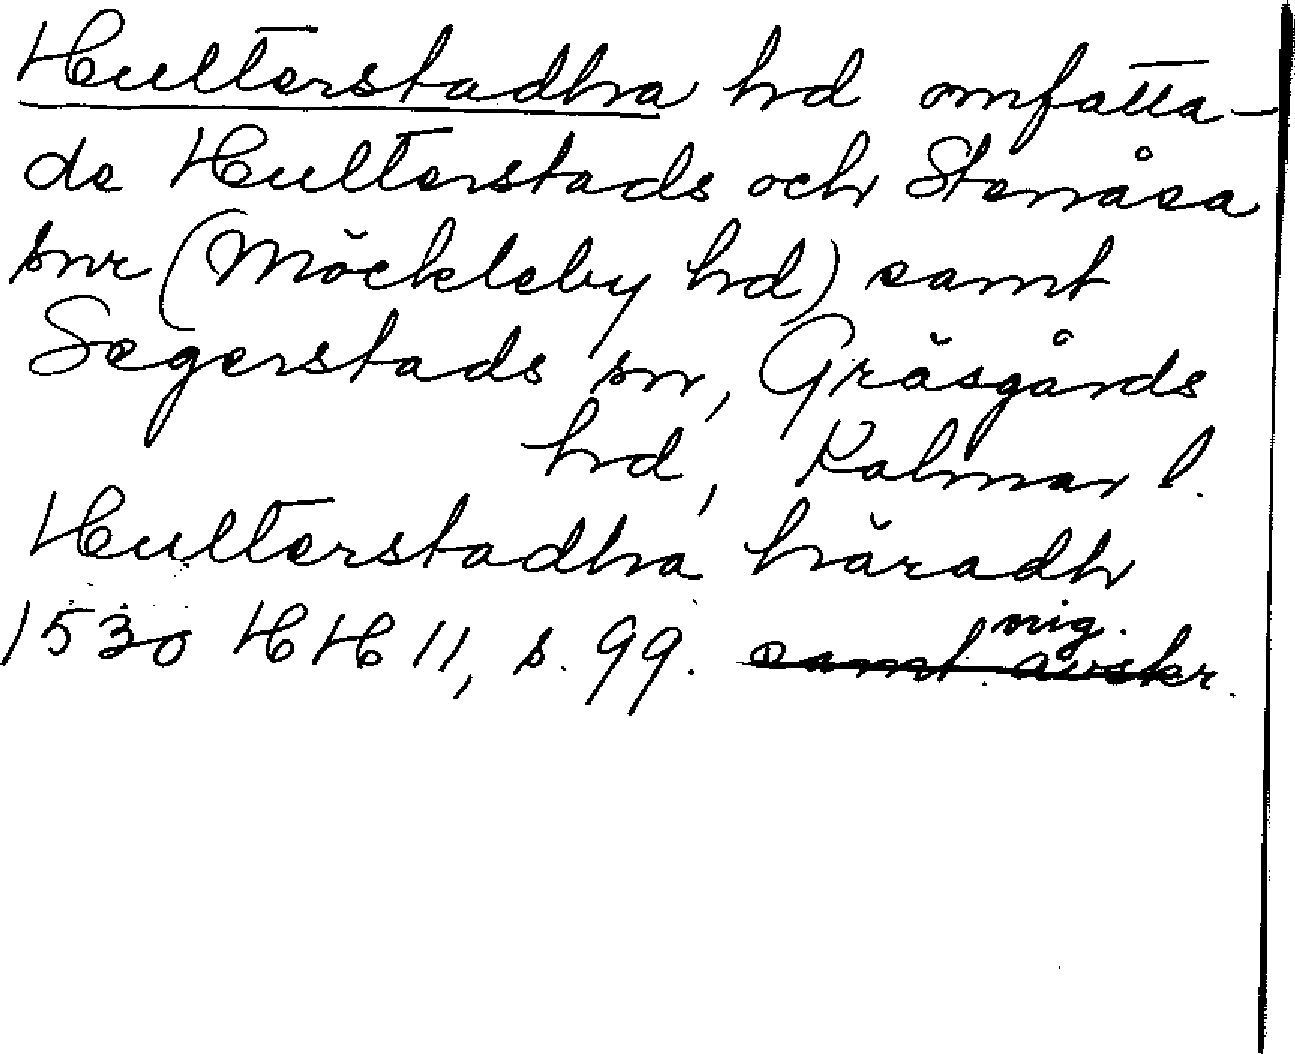 Hulterstadha hd omfatta-
de Hulterstads och Stenåsa
snr (Möckleby hd) samt
Segerstads sn, Gräsgårds
hd, Kalmar l.
Hulterstadha häradh
1530 HH 11, s. 99. samt avskr.